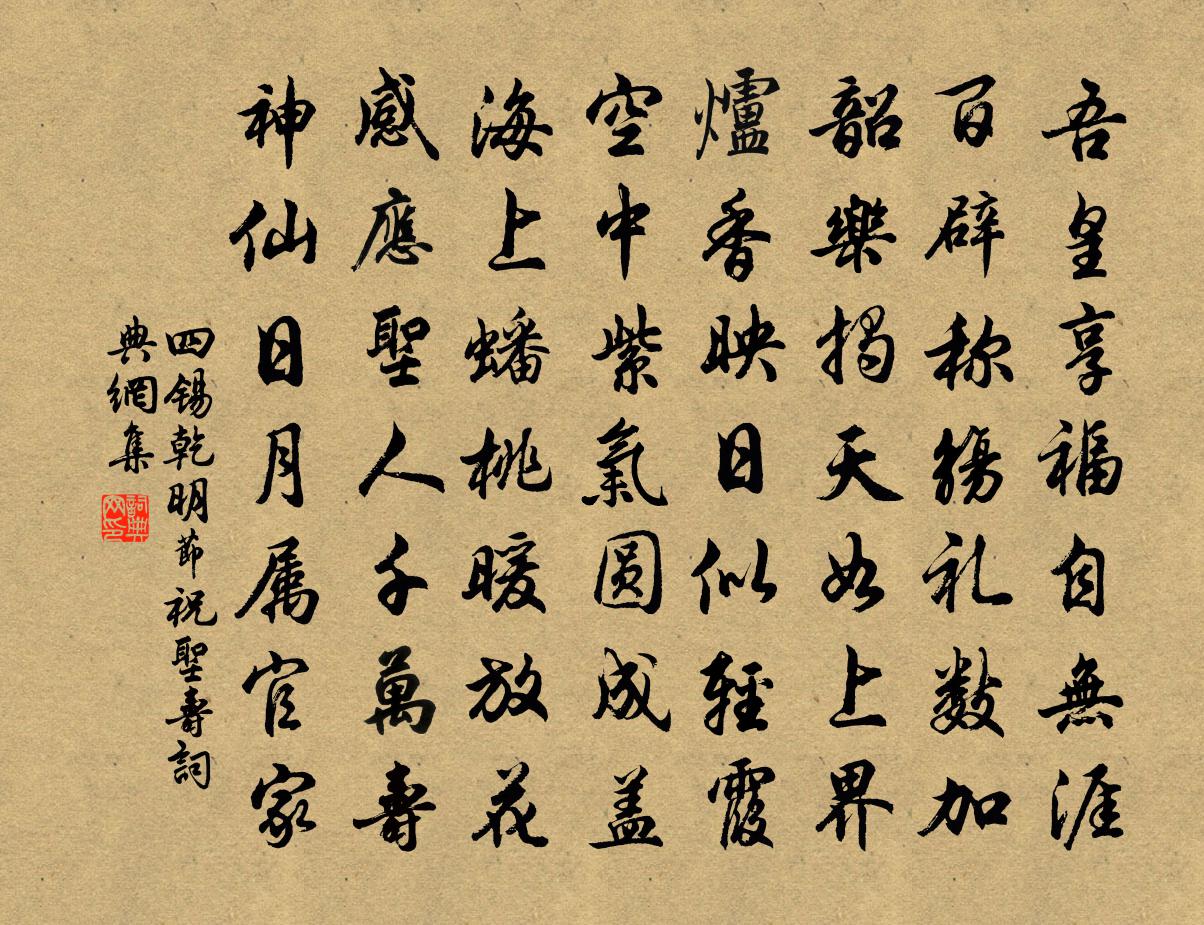 吾皇享福自無涯
百辟称觴礼数加
韶樂揭天如上界
爐香映日似輕霞
空中紫氣圓成盖
海上蟠桃暖放花
感應聖人千萬壽
神仙日月属官家
四錫乾明節祝聖壽詞
典網集
詞典网印